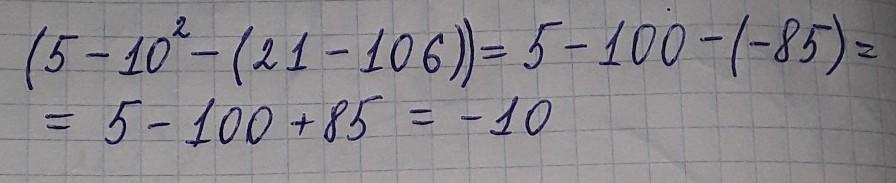 (5-10²-(21-106))=5-100-(-85)=
=5-100+85=-10